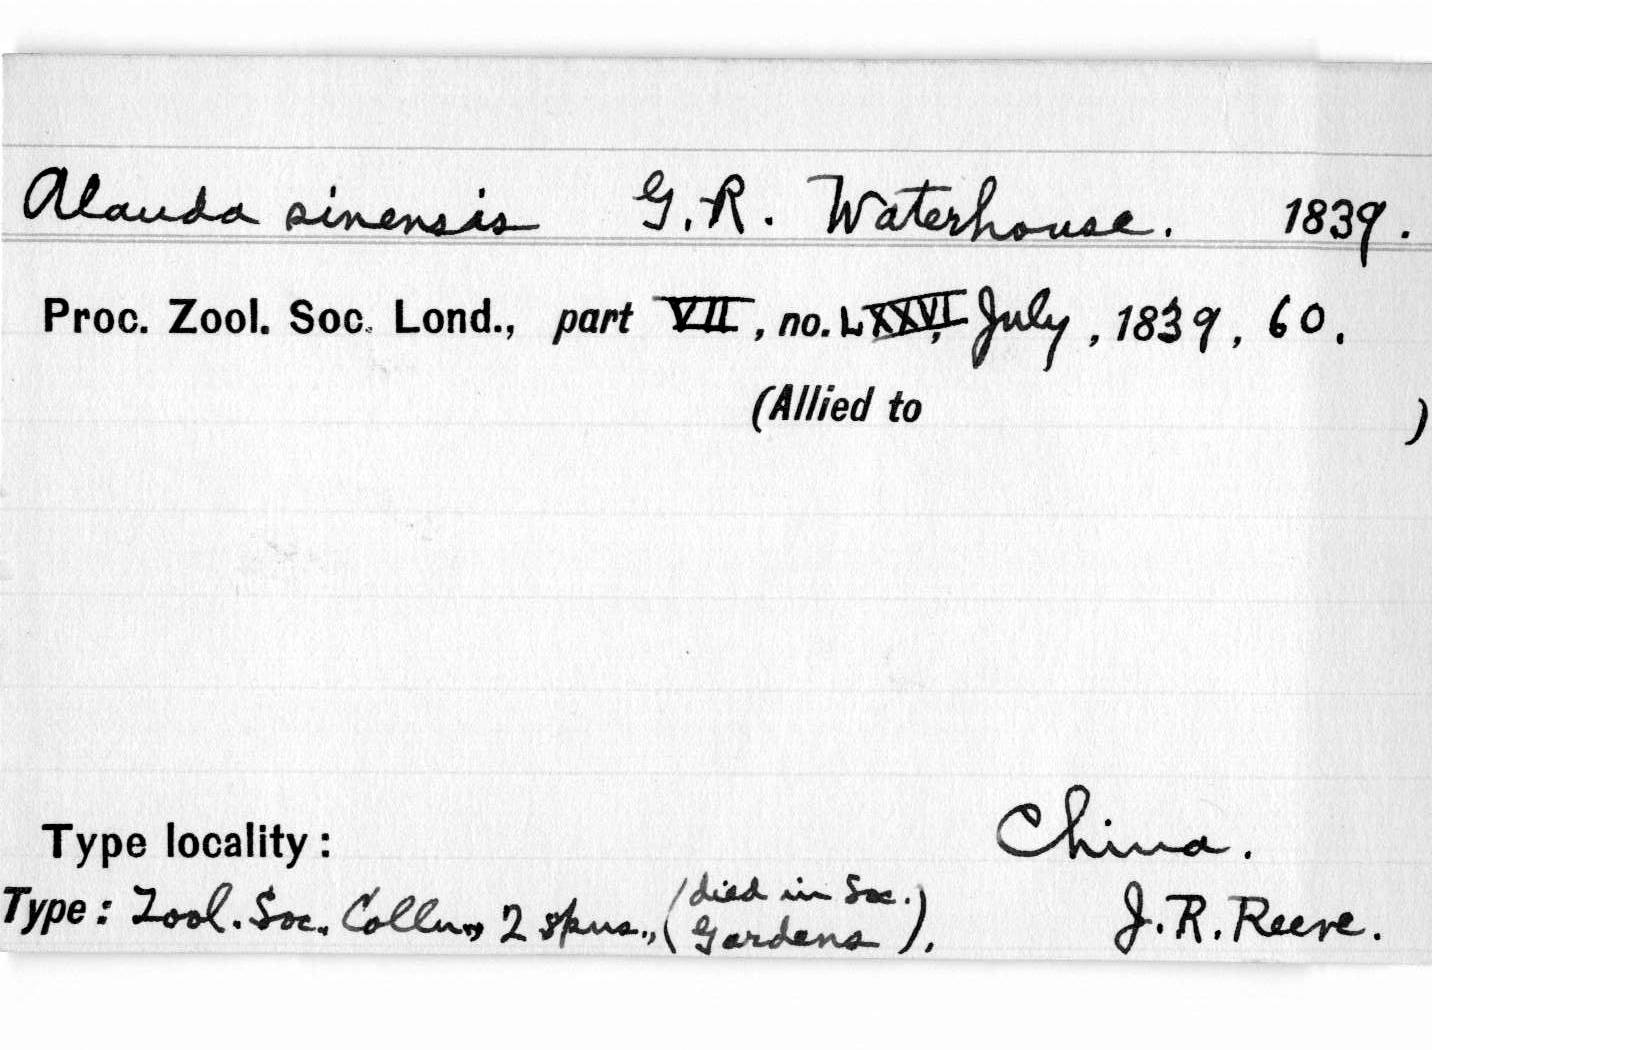 Alauda sinensis G. R. Waterhouse. 1839.
Proc. Zool. Soc. Lond., part VII, no. LXXVI, July, 1839, 60.
(Allied to )
Type locality: China.
Type: Zool. Soc. Colln., 2 spns., (died in Soc. Gardens). J. R. Reeve.